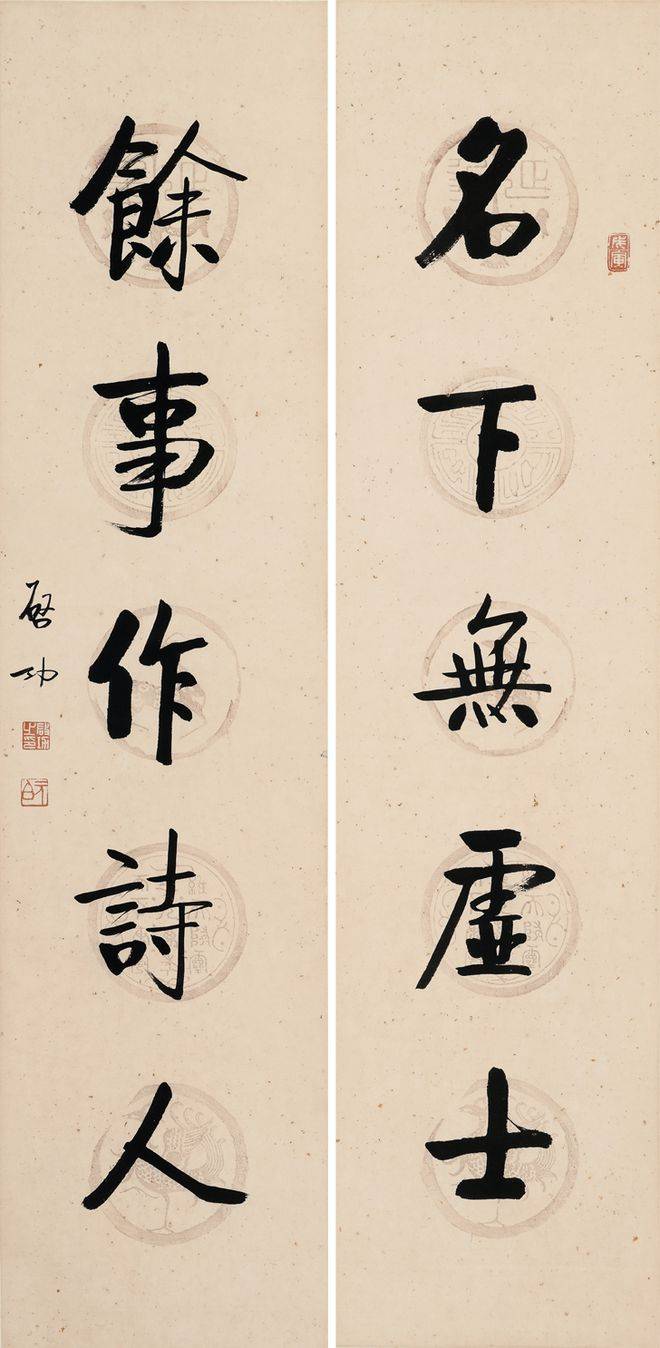 名下無虛士
餘事作詩人
啓功
戊寅